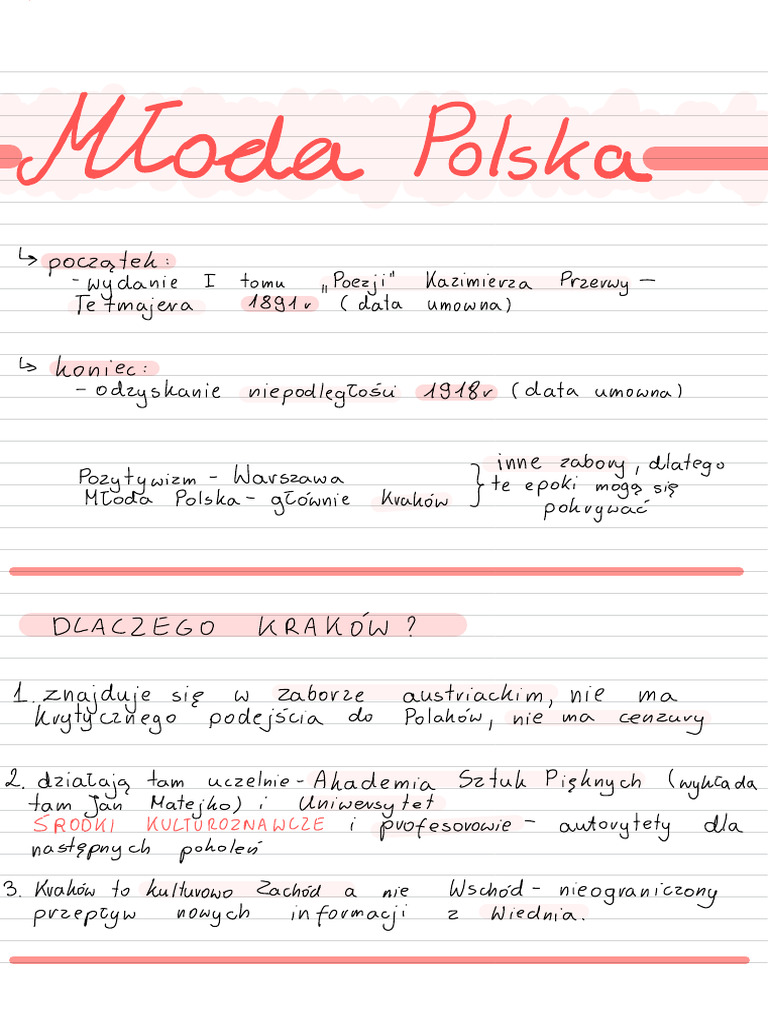 Młoda Polska
↳ początek:
- wydanie I tomu „Poezji" Kazimierza Przerwy –
Tetmajera 1891r (data umowna)
↳ koniec:
- odzyskanie niepodległości 1918r (data umowna)
Pozytywizm - Warszawa
Młoda Polska - głównie Kraków
} inne zabory, dlatego
te epoki mogą się
pokrywać
DLACZEGO KRAKÓW?
1. znajduje się w zaborze austriackim, nie ma
krytycznego podejścia do Polaków, nie ma cenzury
2. działają tam uczelnie - Akademia Sztuk Pięknych (wykłada
tam Jan Matejko) i Uniwersytet
ŚRODKI KULTUROZNAWCZE i profesorowie - autorytety dla
następnych pokoleń
3. Kraków to kulturowo Zachód a nie Wschód - nieograniczony
przepływ nowych informacji z Wiednia.